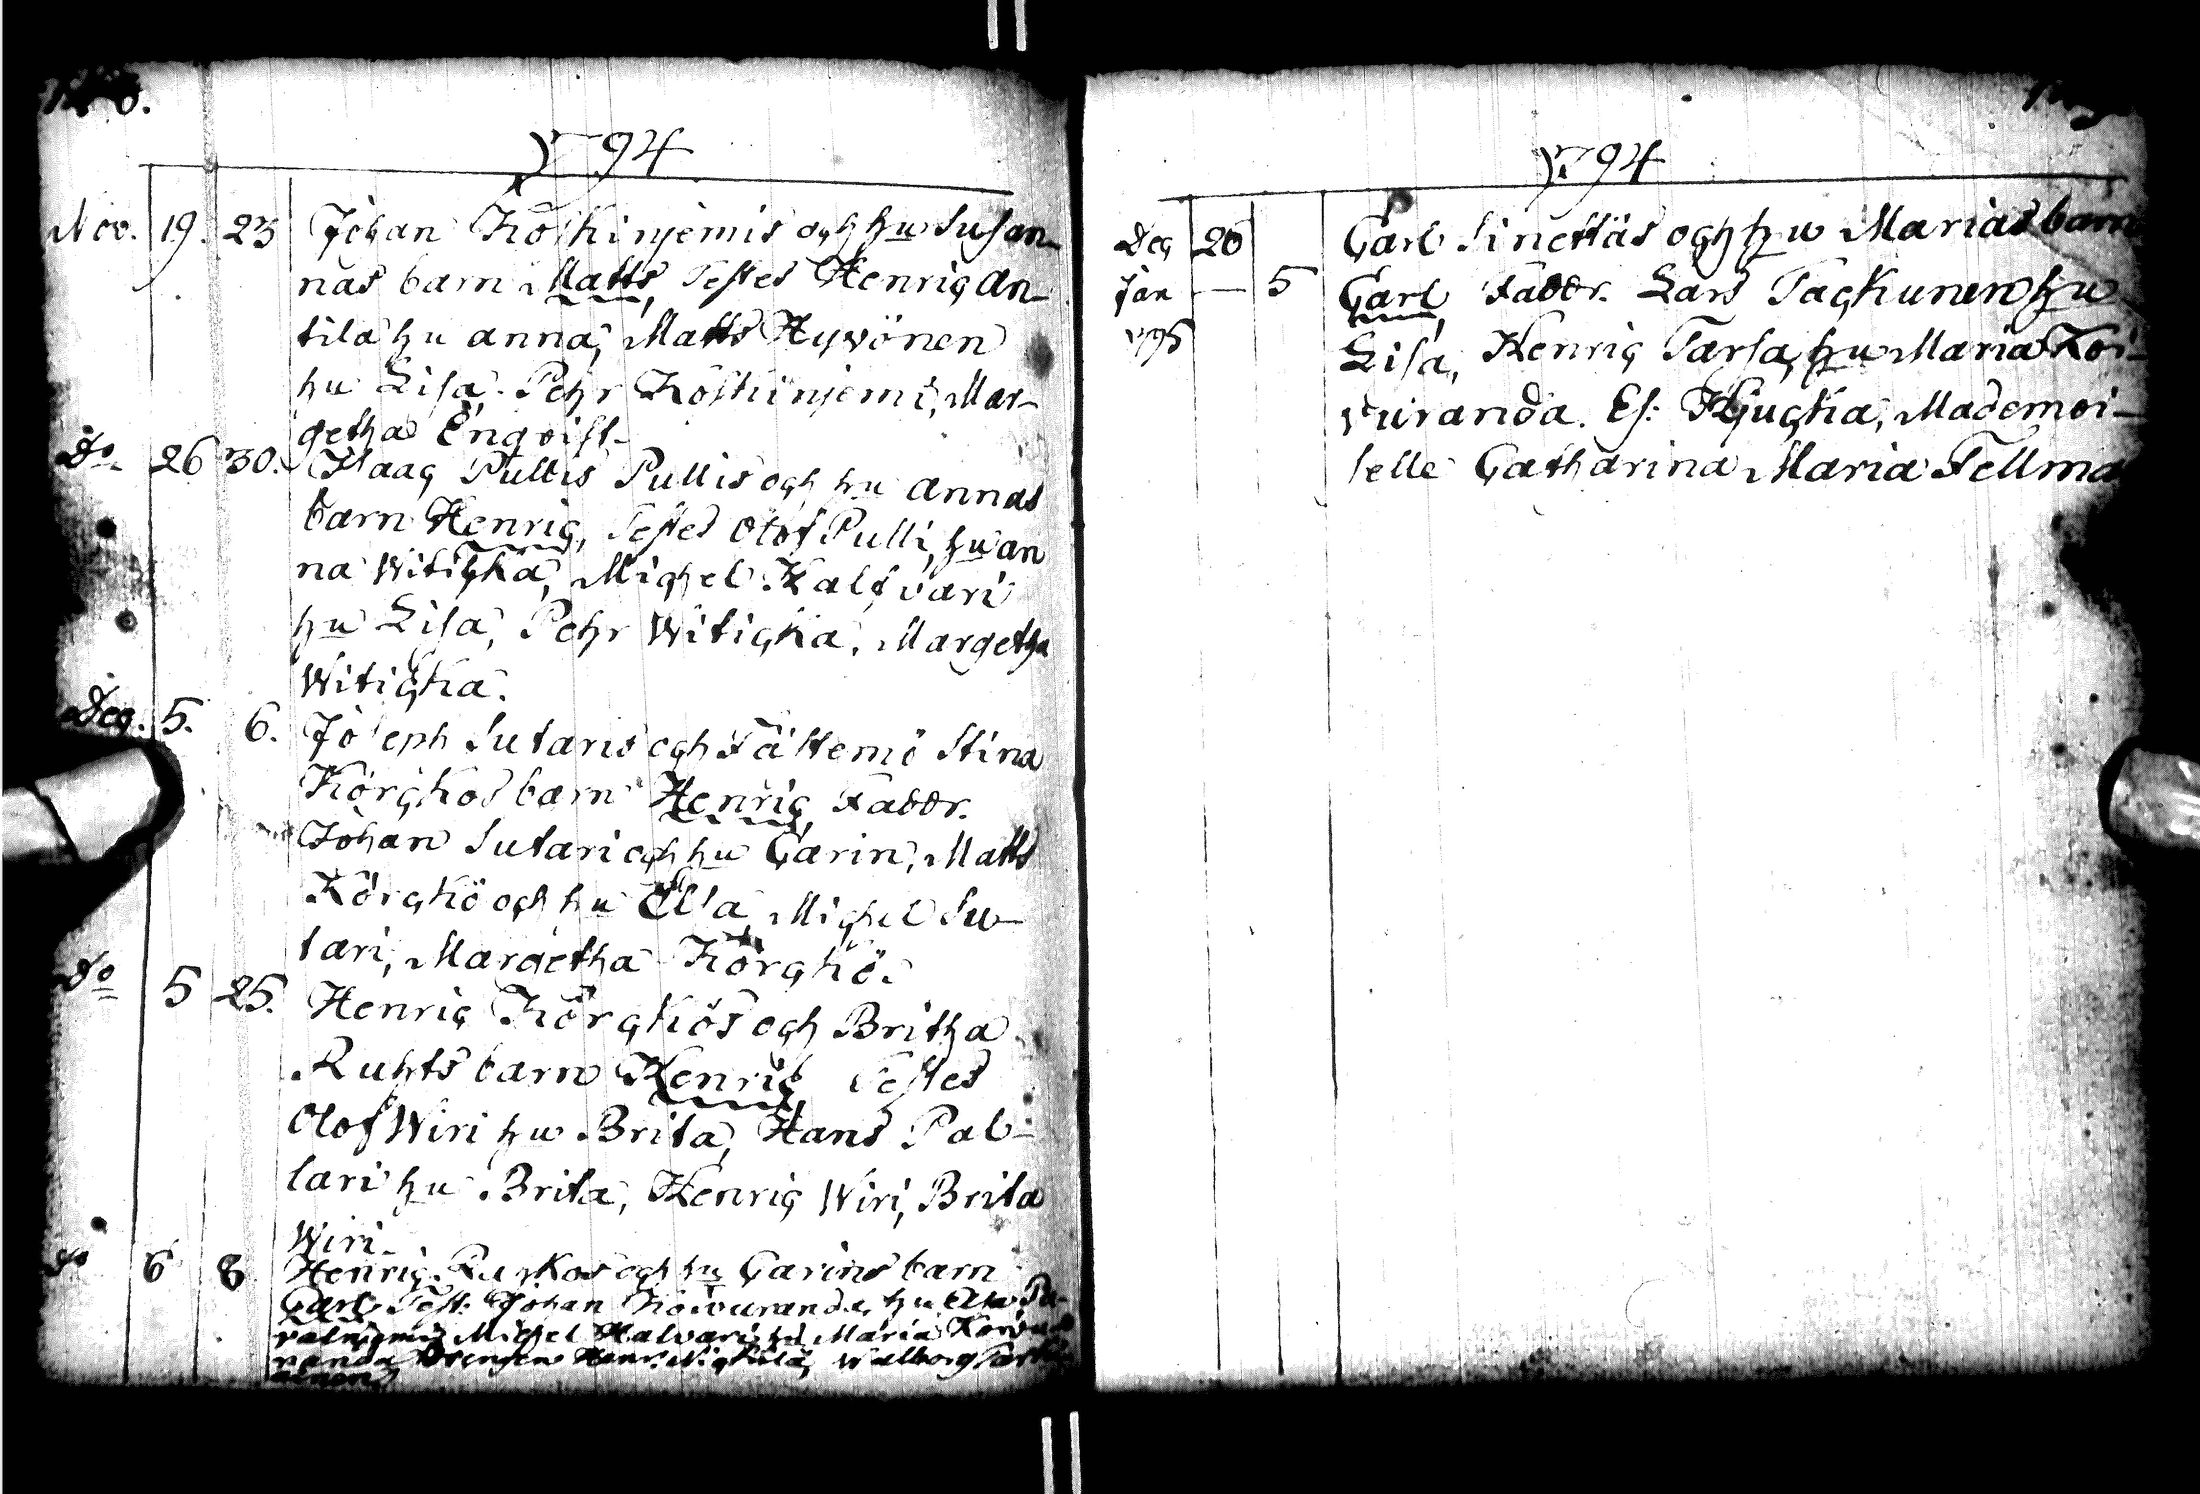 1794
Nov. 19. 23 Johan Koskinjemis och hu Susan-
nas barn Matts, Testes Henric An-
tila hu Anna, Matts Hyvönen
hu Lisa. Pehr Koskinjemi, Mar-
getha Enqvist.
Do. 26 30. Isaac Pullis och hu Annas
barn Henric, Testes Olof Pulli, hu An
na Witicka, Michel Halfvari
hu Lisa, Pehr Witicka, Margetha
Witicka.
Dec. 5. 6. Joseph Sutaris och Fästemö Stina
Körckös barn Henric, Faddr.
Johan Sutari och hu Carin, Matts
Körckö och hu Elsa, Michel Su-
tari, Margetha Körckö.
Do 5 25. Henric Körckös och Britha
Ruhts barn Henric Testes
Olof Wiri hu Brita, Hans Pal-
lari hu Brita, Henric Wiri, Brita
Wiri.
Do 6 8 Henric och hu Carins barn
Carl, Test: Johan Koivuranda, hu
Michel Halvari, hu Maria Koivu
randa Drengen Henr. Walborg
1794
Dec 26 Carl Sinettäs och hu Marias barn
Jan — 5 Carl Faddr. Lars Tackunen hu
1795 Lisa, Henric Tarsa, hu Maria Koi-
vuranda. Es: Hjucka, Mademoi-
selle Catharina Maria Fellma